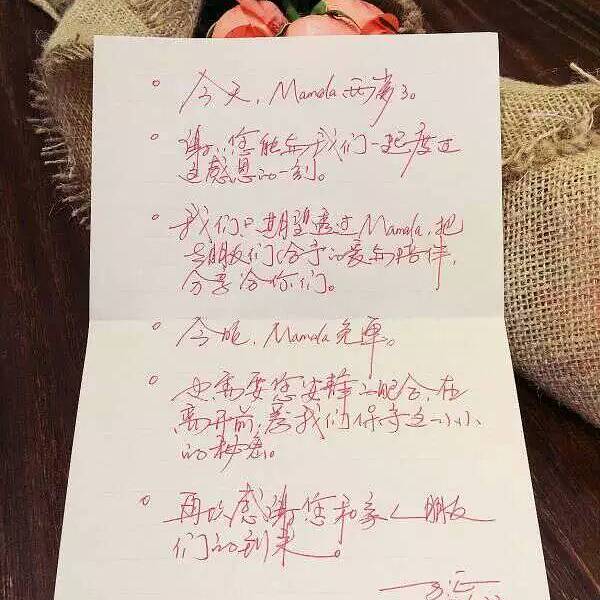 今天，Mamala 两岁了。
谢谢您能与我们一起度过
这感恩的一刻。
我们只期望透过Mamala，把
朋友们给予的爱与陪伴，
分享给你们。
今晚，Mamala免单。
也需要您安静的配合，在
离开前，为我们保守这一小小
的秘密。
再次感谢您和家人朋友
们的到来。